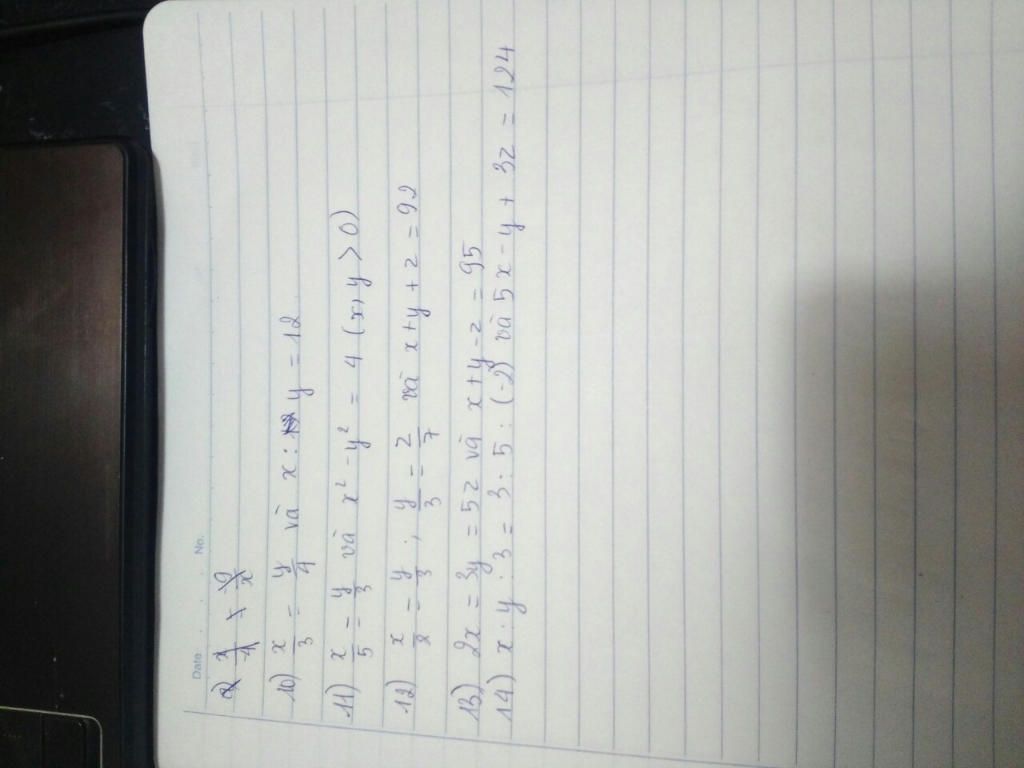 Date . No.
10) x/3 = y/4 và x : y = 12
11) x/5 = y/3 và x² - y² = 4 (x, y > 0)
12) x/2 = y/3 ; y/3 = z/7 và x + y + z = 92
13) 2x = 3y = 5z và x + y - z = 95
14) x : y : 3 = 3 : 5 : (-2) và 5x - y + 3z = 124